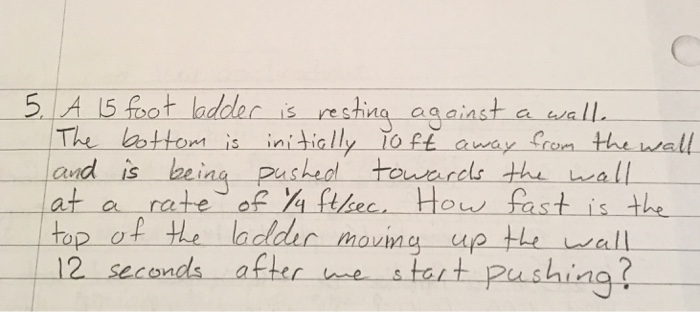 5. A 15 foot ladder is resting against a wall.
The bottom is initially 10 ft away from the wall
and is being pushed towards the wall
at a rate of 1/4 ft/sec. How fast is the
top of the ladder moving up the wall
12 seconds after we start pushing?